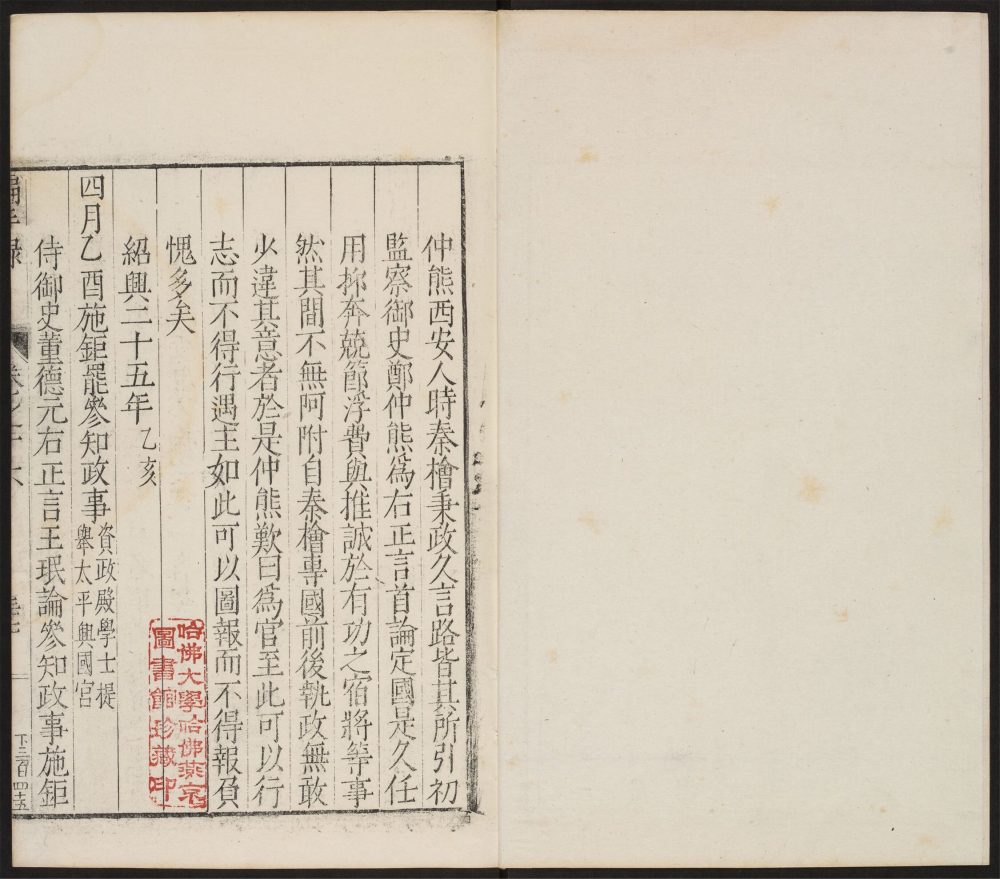 仲熊西安人時秦檜秉政久言路皆其所引初
監察御史鄭仲熊為右正言首論定國是久任
用抑奔競節浮費與推誠於有功之宿將等事
然其間不無阿附自秦檜專國前後執政無敢
少違其意者於是仲熊歎曰為官至此可以行
志而不得行遇主如此可以圖報而不得報負
愧多矣
紹興二十五年乙亥
四月乙酉施鉅罷參知政事資政殿學士提
舉太平興國宮
侍御史董德元右正言王珉論參知政事施鉅
錄
卷之十六
下三百四十五
哈佛大學哈佛燕京
圖書館珍藏印